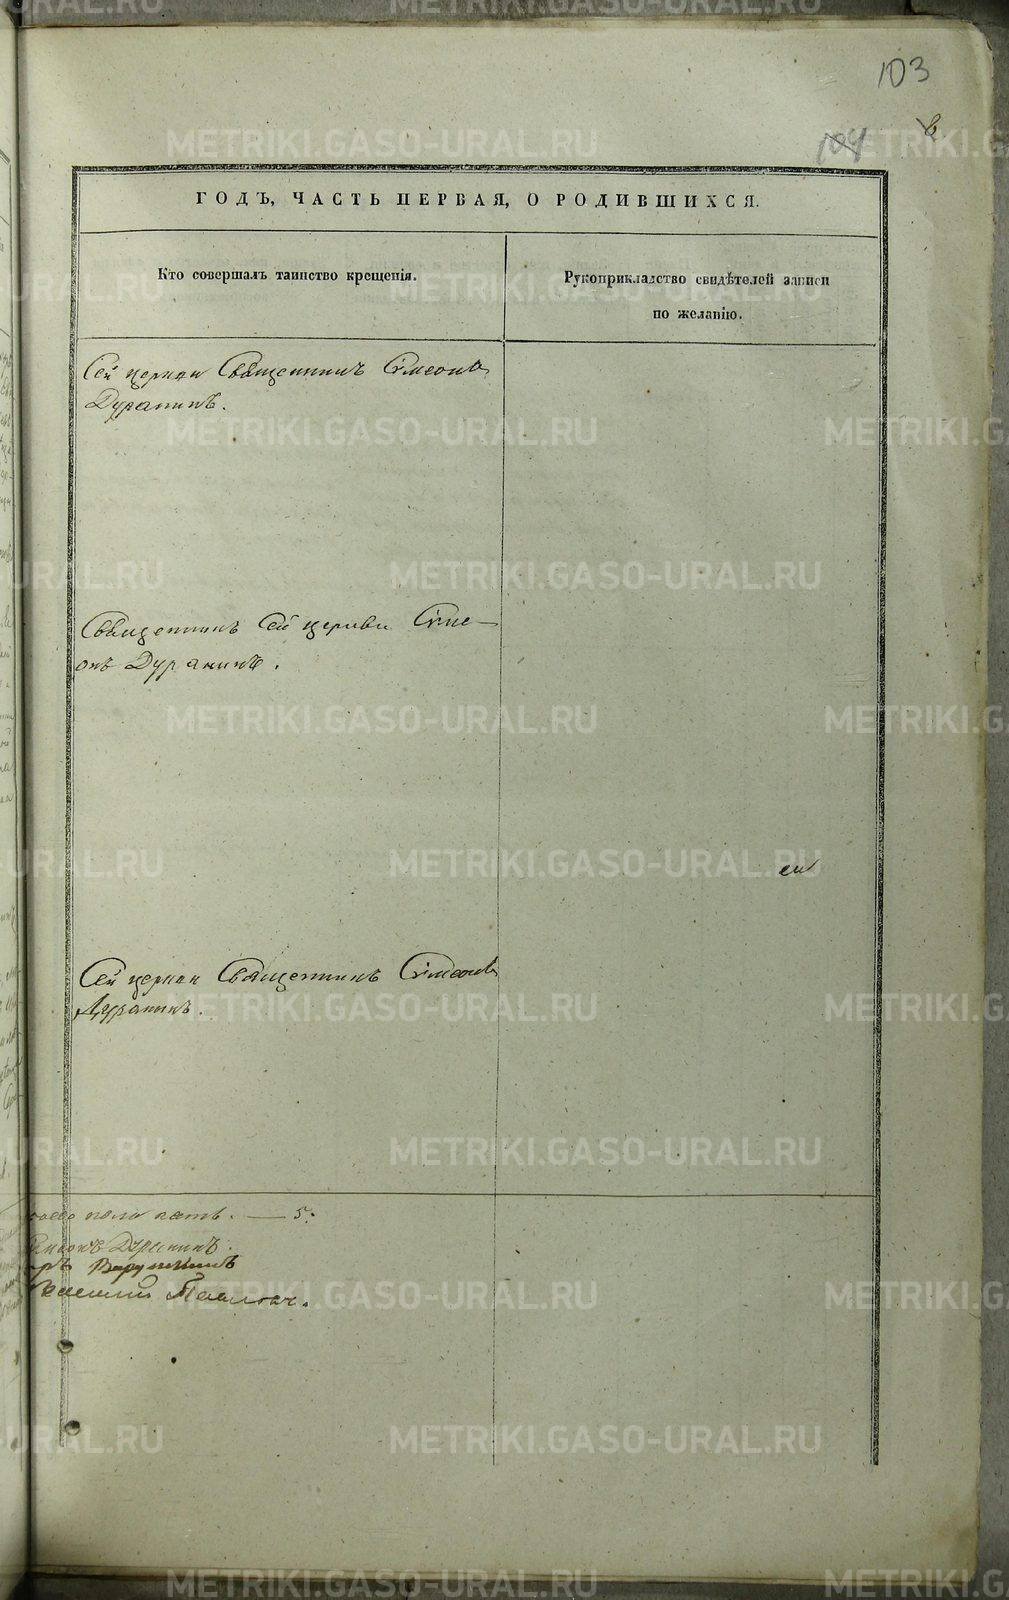 103
104
в
ГОДЪ, ЧАСТЬ ПЕРВАЯ, О РОДИВШИХСЯ.
Кто совершалъ таинство крещенія.
Рукоприкладство свидѣтелей записи
по желанію.
Сей церкви Священникъ Сѵмеонъ
Дуранинъ.
Священникъ Сей церкви Сѵме-
онъ Дуранинъ.
Сей церкви Священникъ Сѵмеонъ
Дуранинъ.
пола пять. — 5.
Дуранинъ.
METRIKI.GASO-URAL.RU